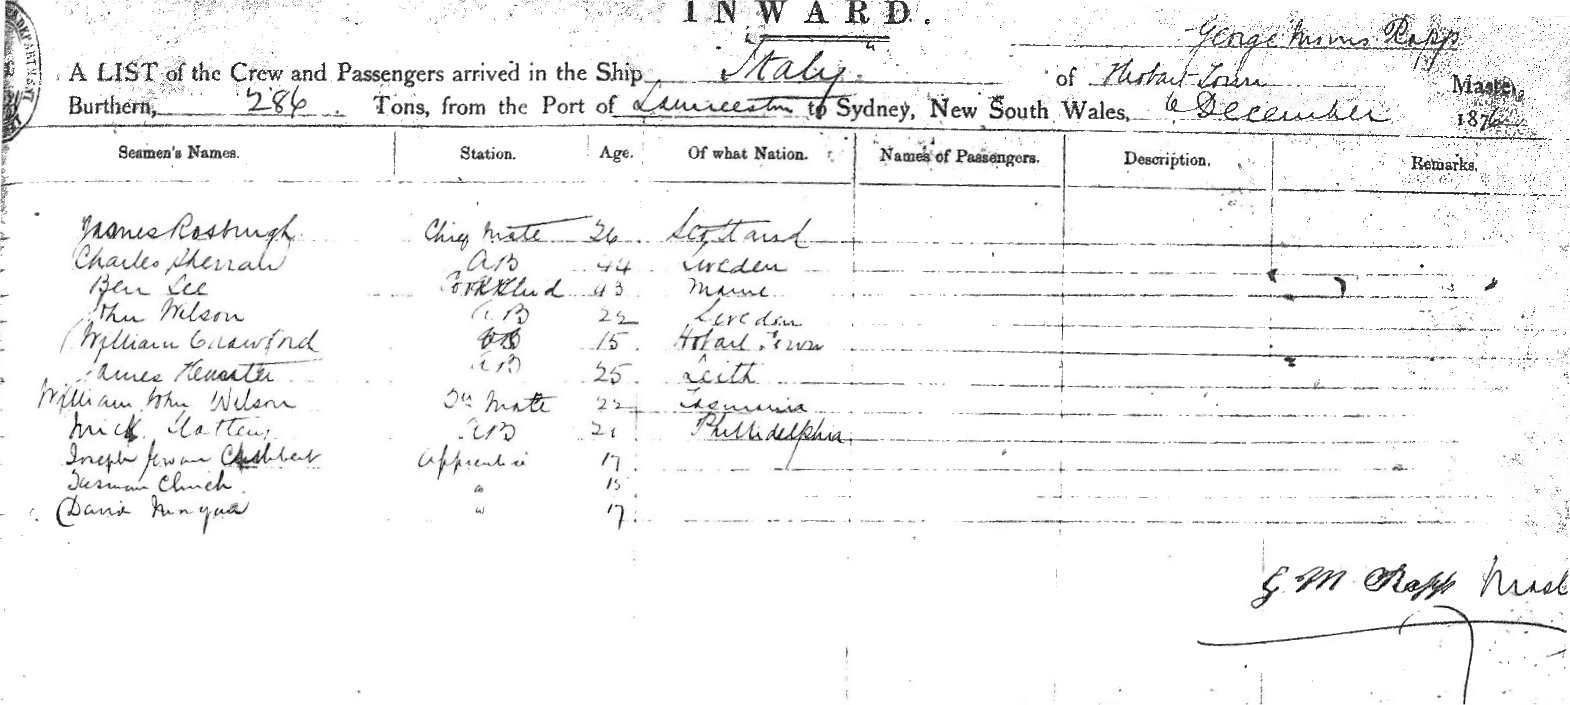 INWARD.
George Rapp
A LIST of the Crew and Passengers arrived in the Ship "Italy" of Hobart Town Master,
Burthern, 286 Tons, from the Port of Launceston to Sydney, New South Wales, 6 December 1876
Seamen's Names. Station. Age. Of what Nation. Names of Passengers. Description. Remarks.
James Rosburgh Chief Mate 26 Scotland
Charles AB 44 Sweden
Ben Lee 43
John Wilson AB 22 Sweden
William Crawford 15 Hobart Town
James AB 25 Leith
William John Wilson Mate 22 Tasmania
Mick Slattery AB 21 Phillidelphia
Joseph Cuthbert Apprentice 17
Tasman Church " 15
David " 17
G M Rapp Mast